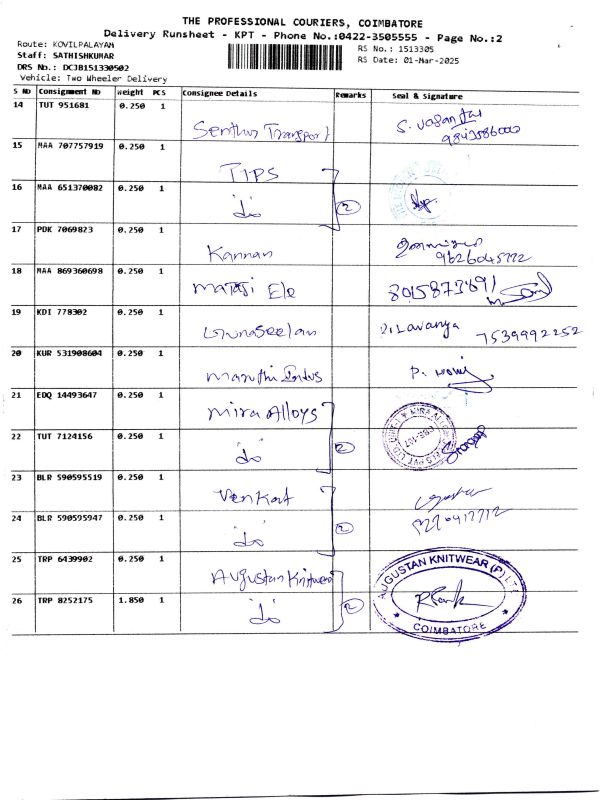 THE PROFESSIONAL COURIERS, COIMBATORE
Delivery Runsheet - KPT - Phone No.:0422-3505555 - Page No.:2
Route: KOVILPALAYAM
RS No.: 1513305
Staff: SATHISHKUMAR
RS Date: 01-Mar-2025
DRS No.: DCJB151330502
Vehicle: Two Wheeler Delivery
S No Consignment No Weight PCS Consignee Details Remarks Seal & Signature
14 TUT 951681 0.250 1
Senthur Transport S. Vasantha
15 MAA 707757919 0.250 1
TIPS
16 MAA 651370082 0.250 1
do 2
17 PDK 7069823 0.250 1
Kannan
9626045772
18 MAA 869360698 0.250 1
Mataji Ele
19 KDI 778302 0.250 1
Gunaseelan D. Lavanya 7539992252
20 KUR 531908604 0.250 1
Maruthi Indus
21 EDQ 14493647 0.250 1
Mira Alloys
22 TUT 7124156 0.250 1
do 2
23 BLR 590595519 0.250 1
Venkat
24 BLR 590595947 0.250 1
do 2
25 TRP 6439902 0.250 1
Augustan Knitwear
AUGUSTAN KNITWEAR (P) LTD
26 TRP 8252175 1.850 1
do 2
COIMBATORE